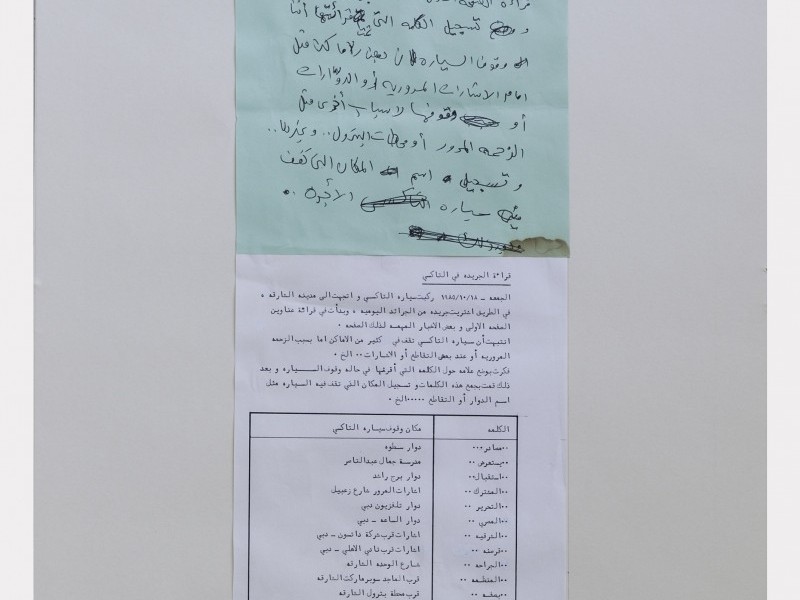 و تسجيل الكلمه التي قرأتها أثنا
وقوف السياره
امام الاشارات المروريه أو الدوارات
أو وقوفها لاسباب أخرى مثل
الزحمه المرور أو محطات البترول.. وغيرها..
و تسجيل اسم المكان التي تقف
سياره الأجرة ..
قراءة الجريده في التاكسي
الجمعه – ١٩٨٥/١٠/١٨ ركبت سياره التاكسي و اتجهت الى مدينه الشارقه ،
في الطريق اشتريت جريده من الجرائد اليوميه ، وبدأت في قراءة عناوين
الصفحه الاولى و بعض الاخبار المهمه لذلك الصفحه .
انتبهت أن سياره التاكسي تقف في كثير من الاماكن اما بسبب الزحمه
المروريه أو عند بعض التقاطع أو الاشارات ٠٠ الخ .
فكرت بوضع علامه حول الكلمه التي أقرئها في حاله وقوف السياره و بعد
ذلك قمت بجمع هذه الكلمات و تسجيل المكان الذي تقف فيه السياره مثل
اسم الدوار أو التقاطع ٠٠٠٠٠ الخ .
الكلمه مكان وقوف سياره التاكسي
٠٠مصادر٠٠٠ دوار سطوه
٠٠يستعرض ٠٠ مدرسة جمال عبدالناصر
٠٠استقبال٠٠ دوار برج راشد
٠٠المشترك ٠٠ اشارات المرور شارع زعبيل
٠٠التحرير ٠٠ دوار تلفزيون دبي
٠٠المصري ٠٠ دوار الساعه – دبي
٠٠الترفيه ٠٠ اشارات قرب شركة داتسون – دبي
٠٠فرصه ٠٠ اشارات قرب نادي الاهلي – دبي
٠٠الجراحه ٠٠ شارع الوحده الشارقه
٠٠المنطقه ٠٠ قرب الماجد سوبرماركت الشارقه
٠٠بصفه ٠٠ قرب محطة بترول الشارقه